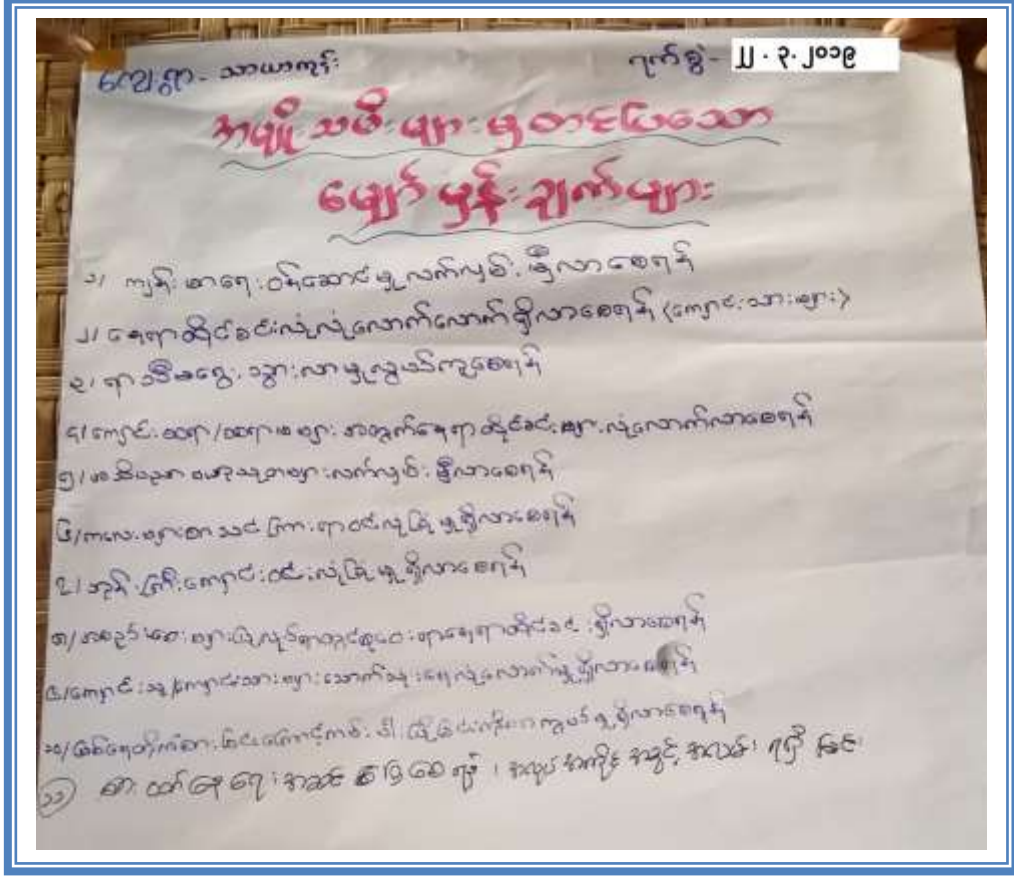 ကျေးရွာ - သာယာကုန်း
ရက်စွဲ - ၂၂.၃.၂၀၁၉
အမျိုးသမီးများမှတင်ပြသော
မျှော်မှန်းချက်များ
၁/ ကျန်းမာရေးဝန်ဆောင်မှုလက်လှမ်းမှီလာစေရန်
၂/ နေရာထိုင်ခင်းလုံလုံလောက်လောက်ရှိလာစေရန် (ကျောင်းသားများ)
၃/ ရာသီမရွေးသွားလာမှုလွယ်ကူစေရန်
၄/ ကျောင်းဆရာ/ဆရာမများအတွက်နေရာထိုင်ခင်းများလုံလောက်လာစေရန်
၅/ အသိပညာ ဗဟုသုတများလက်လှမ်းမှီလာစေရန်
၆/ ကလေးများစာသင်ကြားရာဝင်းလုံခြုံမှုရှိလာစေရန်
၇/ ဘုန်းကြီးကျောင်းဝင်းလုံခြုံမှုရှိလာစေရန်
၈/ အစည်းအဝေးများပြုလုပ်ရာတွင်စုဝေးစရာနေရာထိုင်ခင်းရှိလာစေရန်
၉/ ကျောင်းသူ/ကျောင်းသားများသောက်သုံးရေလုံလောက်မှုရှိလာစေရန်
၁၀/ မြစ်ရေတိုက်စားခြင်းကြောင့်ကမ်းပါးပြိုခြင်းကိုကာကွယ်မှုရှိလာစေရန်
၁၁) စားဝတ်နေရေးအဆင်ပြေစေရန်၊ အလုပ်အကိုင်အခွင့်အလမ်းရရှိခြင်း